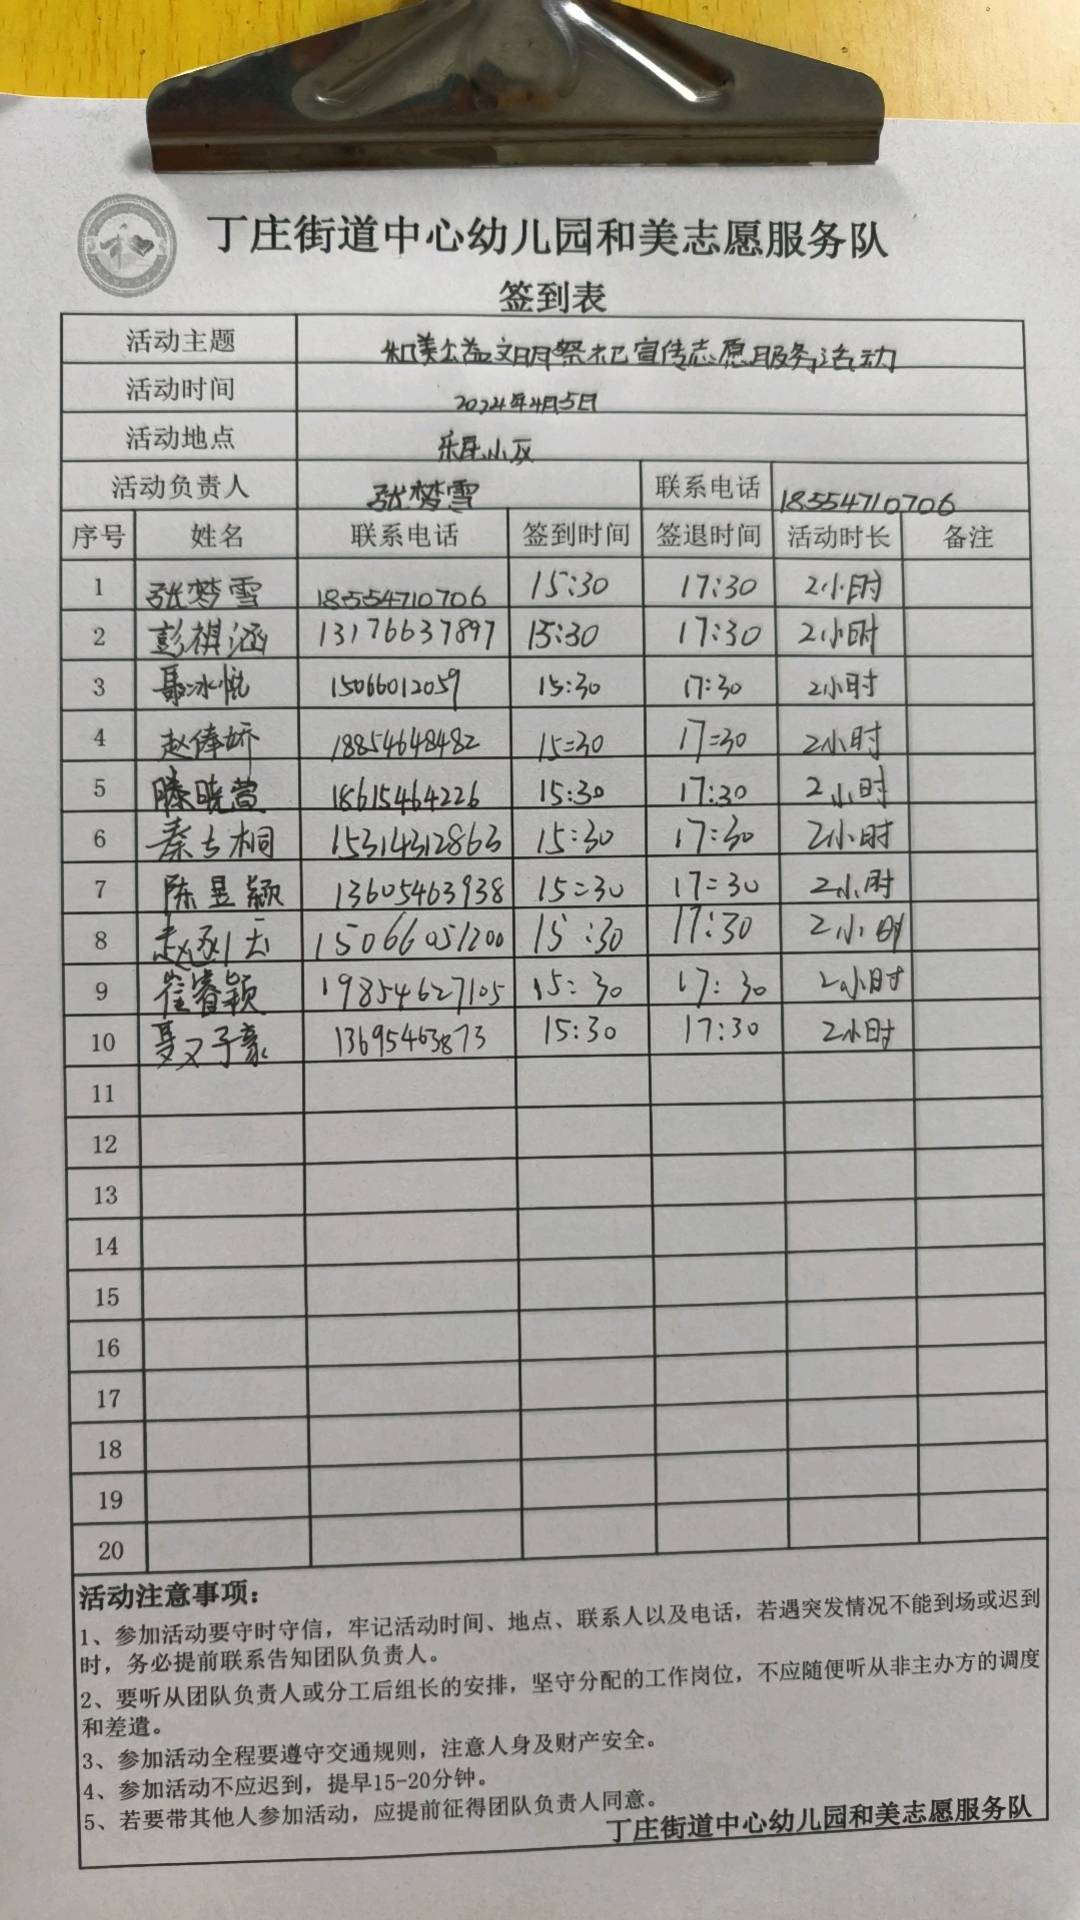 丁庄街道中心幼儿园和美志愿服务队
签到表
活动主题 和美公益文明祭祀宣传志愿服务活动
活动时间 2024年4月5日
活动地点 乐民小区
活动负责人 张梦雪 联系电话 18554710706
序号 姓名 联系电话 签到时间 签退时间 活动时长 备注
1 张梦雪 18554710706 15:30 17:30 2小时
2 彭祺涵 13176637897 15:30 17:30 2小时
3 聂冰悦 15066012059 15:30 17:30 2小时
4 赵俸娇 18854648482 15:30 17:30 2小时
5 滕晓萱 18615464226 15:30 17:30 2小时
6 秦士桐 15314312863 15:30 17:30 2小时
7 陈昱颖 13605463938 15:30 17:30 2小时
8 赵 15066051200 15:30 17:30 2小时
9 崔睿颖 19854627105 15:30 17:30 2小时
10 聂子豪 13695463873 15:30 17:30 2小时
11
12
13
14
15
16
17
18
19
20
活动注意事项：
1、参加活动要守时守信，牢记活动时间、地点、联系人以及电话，若遇突发情况不能到场或迟到
时，务必提前联系告知团队负责人。
2、要听从团队负责人或分工后组长的安排，坚守分配的工作岗位，不应随便听从非主办方的调度
和差遣。
3、参加活动全程要遵守交通规则，注意人身及财产安全。
4、参加活动不应迟到，提早15-20分钟。
5、若要带其他人参加活动，应提前征得团队负责人同意。
丁庄街道中心幼儿园和美志愿服务队